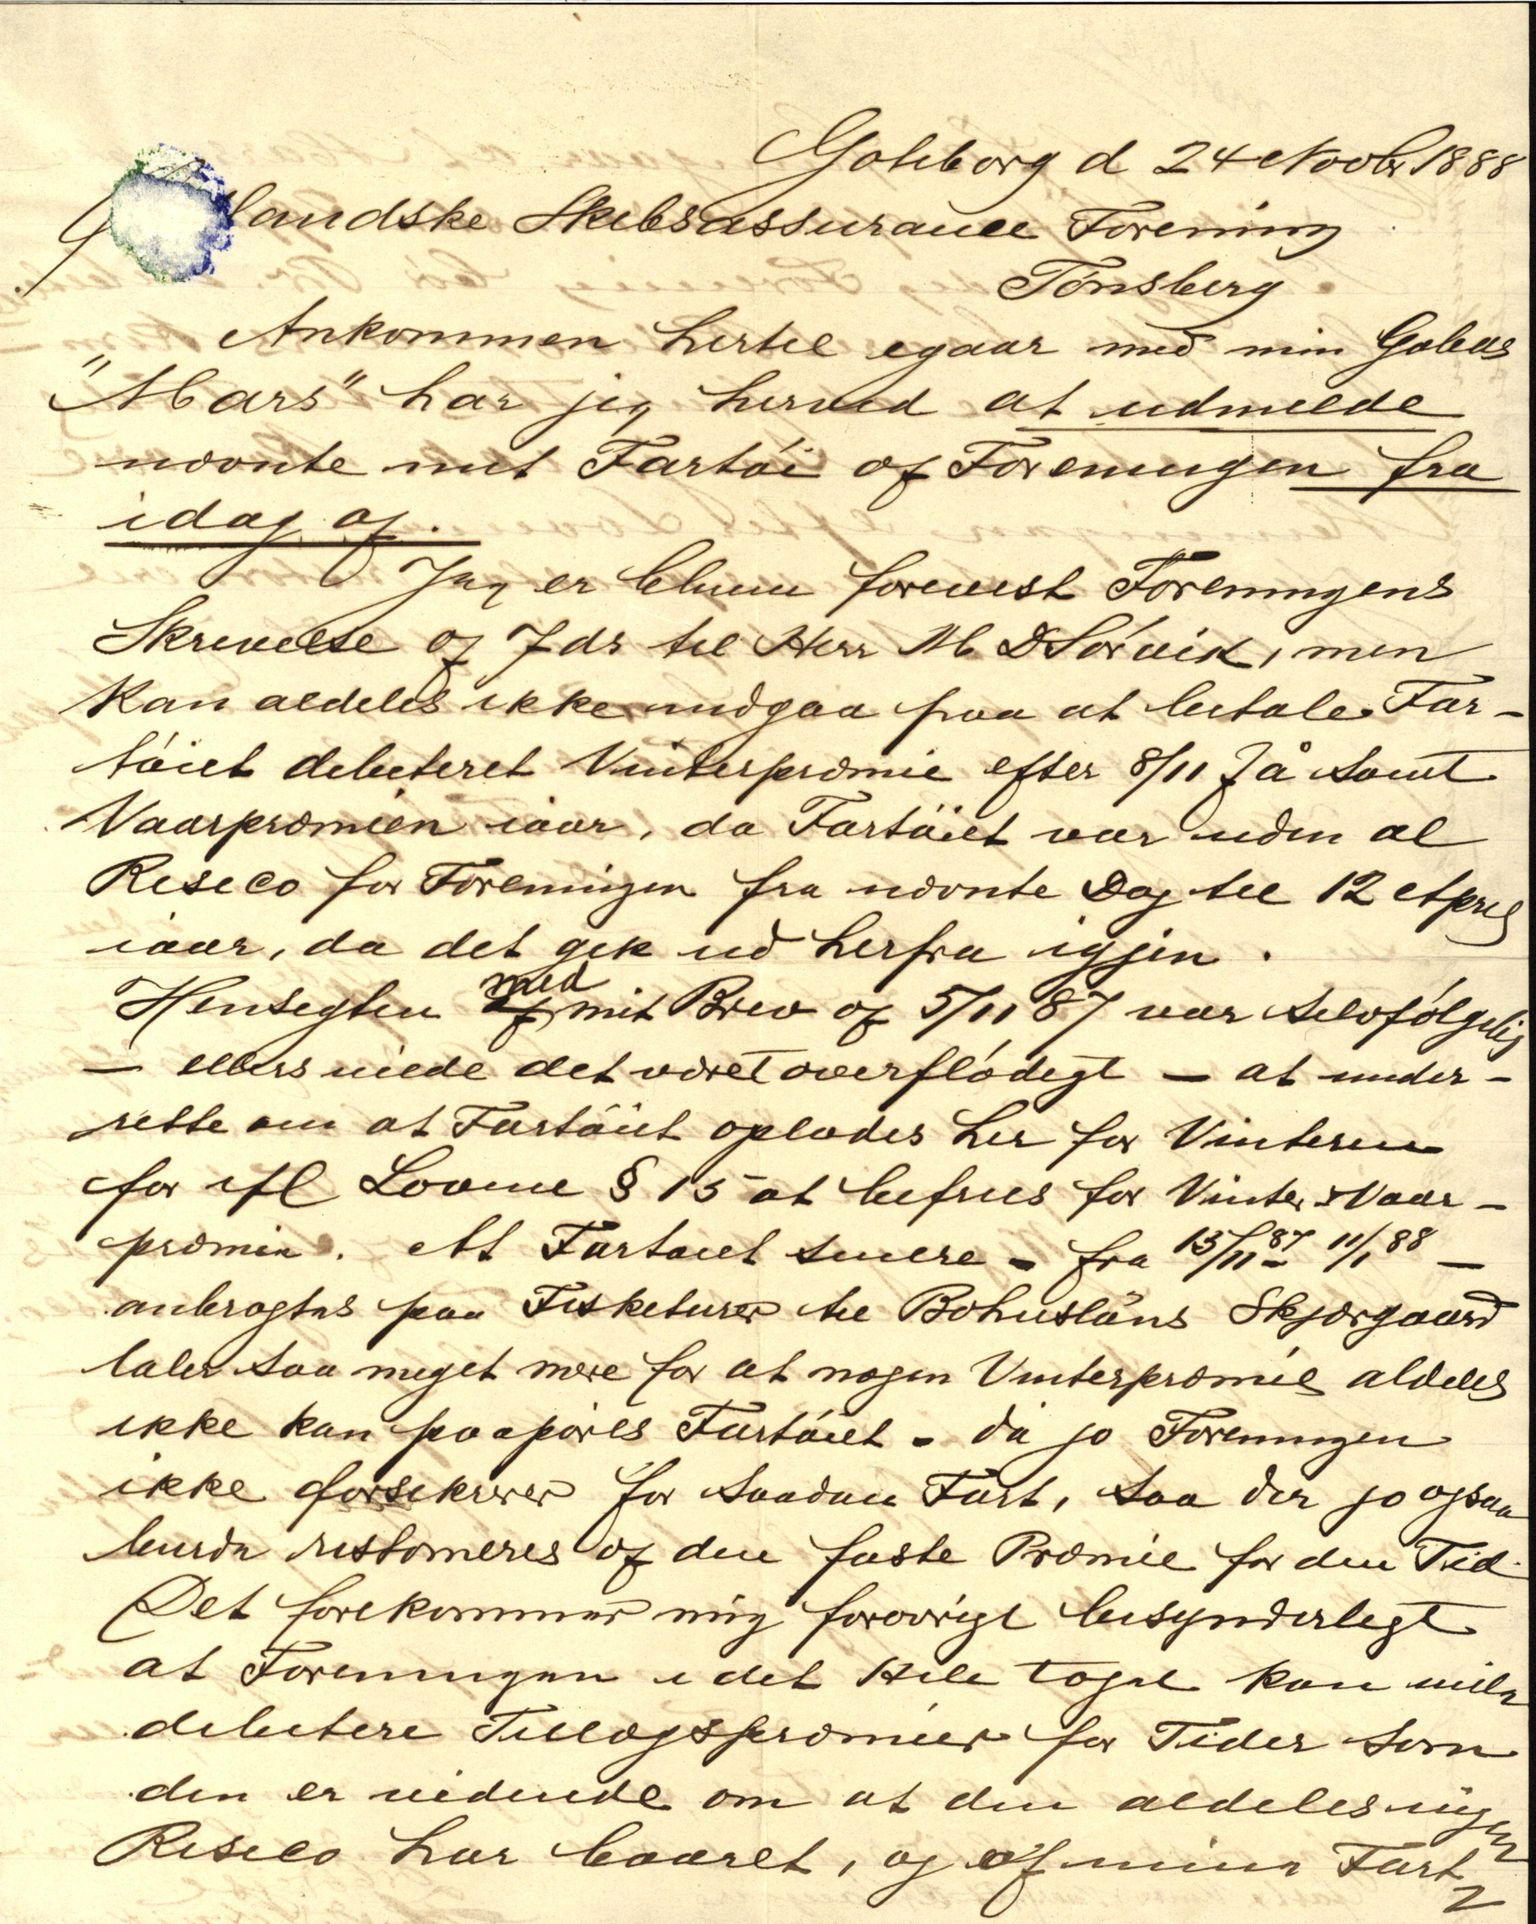 Goteborg d 24 Novbr 1888
landske Skibsassurance Forening
Tønsberg
Ankommen hertil igaar med min Galeas
"Mars" har jeg herved at udmelde
nævnte mit Fartói af Foreningen fra
idag af.
Jeg er bleven forevist Foreningens
Skrivelse af 7 ds til Herr M D Sórvik, men
kan aldeles ikke indgaa paa at betale Far-
tóiet debiteret Vinterpræmie efter 8/11 f å samt
Vaarpræmien iaar, da Fartöiet var uden al
Risico for Foreningen fra nævnte Dag til 12 April
iaar, da det gik ud herfra igjen.
Hensigten med mit Brev af 5/11 87 var selvfólgelig
- ellers vilde det været overflódigt - at under-
rette om at Fartöiet oplades her for Vinteren
for ifl Lovene § 15 at befries for Vinter & Vaar-
præmie. At Fartoiet senere - fra 15/11 87 - 11/1 88 -
anbragtes paa Fisketurer til Bohusläns Skjærgaard
taler saa meget mere for at nogen Vinterpræmie aldeles
ikke kan paaføres Fartóiet - da jo Foreningen
ikke forsikrerer for saadan Fart, saa der jo ogsaa
burde ristorneres af den faste Præmie for den Tid.
Det forekommer mig forøvrigt besynderligt
at Foreningen i det Hele taget kan ville
debitere Tillægspræmier for Tider som
den er vidende om at den aldeles ingen
Risico har baaret, og af mine Fart